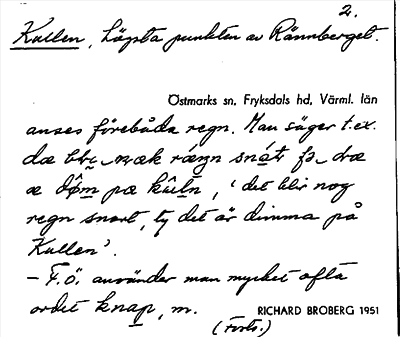 2.
Kullen, högsta punkten av Rännberget.
Östmarks sn, Fryksdals hd, Värml. län
anses förebåda regn. Man säger t.ex.
dæ
snáṭ fɔ dæ
æ dǿm̥ pæ kʉ́ln̥, ‘det blir nog
regn snart, ty det är dimma på
Kullen’.
– F.ö. använder man mycket ofta
ordet knap, m.
RICHARD BROBERG 1951
(Forts.)